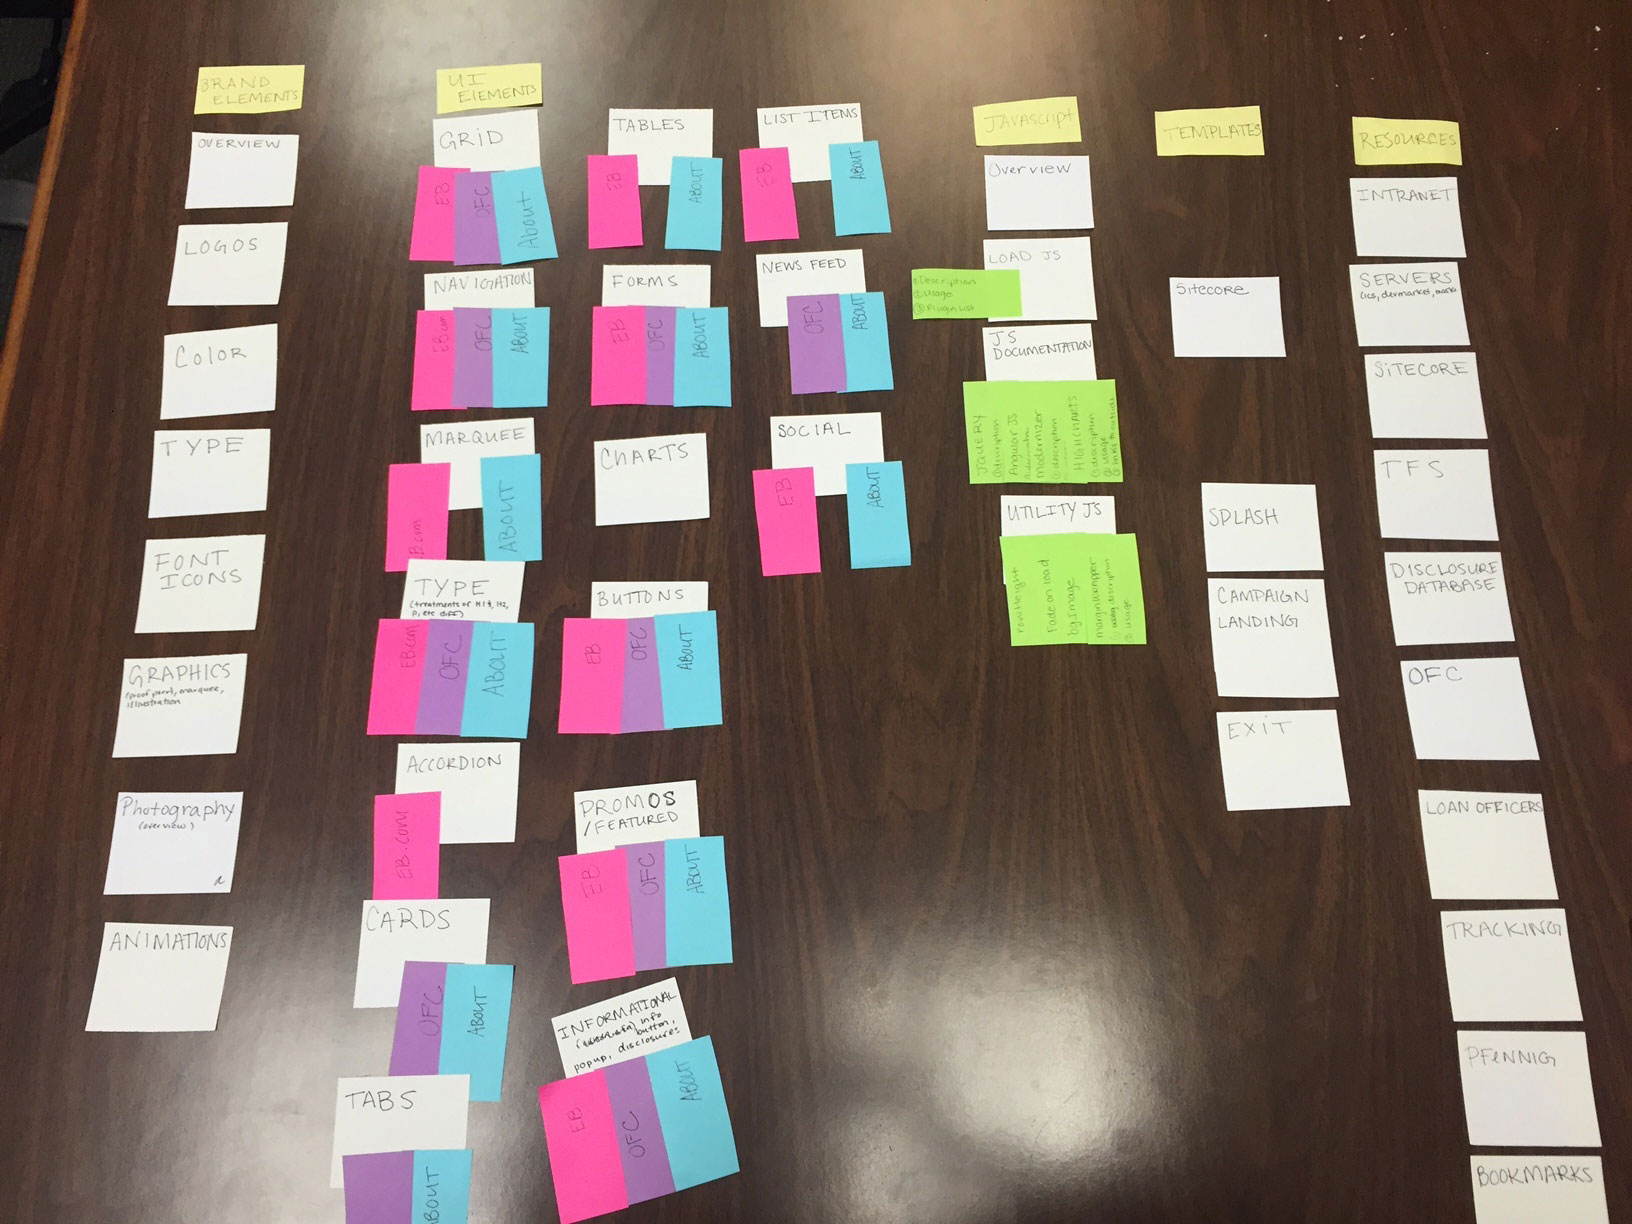 BRAND
ELEMENTS
OVERVIEW
LOGOS
Color
TYPE
FONT
ICONS
GRAPHICS
illustration
Photography
(overview)
ANIMATIONS
UI
ELEMENTS
GRiD
EB
OFC
About
NAVIGATION
EB.com
OFC
ABOUT
MARQUEE
ABOUT
TYPE
(treatments of H1, H2,
P, etc diff)
EB.com
OFC
ABOUT
ACCORDION
EB.com
CARDS
OFC
ABOUT
TABS
ABOUT
TABLES
EB
ABOUT
FORMS
EB
OFC
ABOUT
CHARTS
BUTTONS
EB
OFC
ABOUT
PROMOS
/FEATURED
EB
OFC
ABOUT
INFORMATIONAL
info
button,
popup, disclosures
EB
OFC
ABOUT
LIST ITEMS
EB
ABOUT
NEWS FEED
OFC
ABOUT
SOCIAL
EB
ABOUT
JAVAScript
Overview
LOAD JS
Description
Usage
Plugin List
JS
DOCUMENTATION
JQUERY
description
Angular JS
Modernizer
description
HIGHCHARTS
description
usage
UTILITY JS
rowHeight
Fade on load
bg.Image
marginwrapper
usage
TEMPLATES
Sitecore
SPLASH
CAMPAIGN
LANDING
EXiT
RESOURCES
INTRANET
SERVERS
SiTECORE
TFS
DISCLOSURE
DATABASE
OFC
LOAN OFFICERS
TRACKING
PFeNNIG
BOOKMARKS